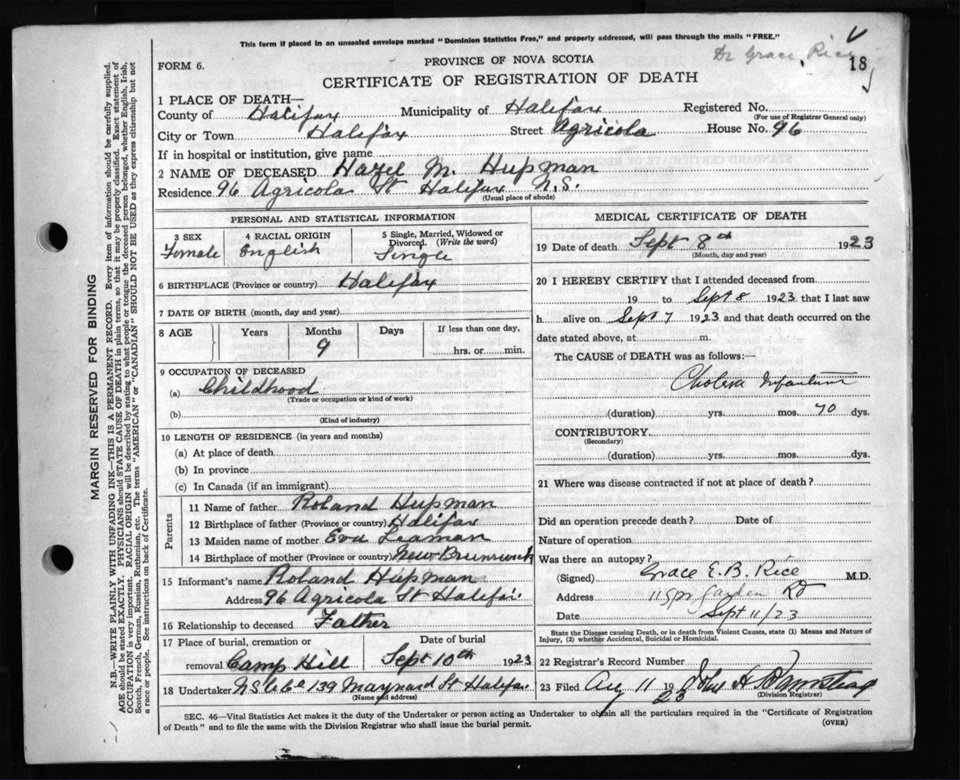 This form if placed in an unsealed envelope marked "Dominion Statistics Free," and properly addressed, will pass through the mails "FREE."
Dr Grace Rice
FORM 6.
PROVINCE OF NOVA SCOTIA
18
CERTIFICATE OF REGISTRATION OF DEATH
1 PLACE OF DEATH—
County of Halifax Municipality of Halifax Registered No.
(For use of Registrar General only)
City or Town Halifax Street Agricola House No. 96
If in hospital or institution, give name
2 NAME OF DECEASED Hazel M. Hupman
Residence 96 Agricola St Halifax N.S.
(Usual place of abode)
PERSONAL AND STATISTICAL INFORMATION
3 SEX 4 RACIAL ORIGIN 5 Single, Married, Widowed or Divorced. (Write the word)
Female English Single
6 BIRTHPLACE (Province or country) Halifax
7 DATE OF BIRTH (month, day and year)
8 AGE Years Months Days If less than one day,
9 hrs. or min.
9 OCCUPATION OF DECEASED
(a) Childhood
(Trade or occupation or kind of work)
(b)
(Kind of industry)
10 LENGTH OF RESIDENCE (in years and months)
(a) At place of death
(b) In province
(c) In Canada (if an immigrant)
Parents
11 Name of father Roland Hupman
12 Birthplace of father (Province or country) Halifax
13 Maiden name of mother Eva Leaman
14 Birthplace of mother (Province or Country) New Brunswick
15 Informant's name Roland Hupman
Address 96 Agricola St Halifax
16 Relationship to deceased Father
17 Place of burial, cremation or Date of burial
removal Camp Hill Sept 10th 1923
18 Undertaker 139 Maynard St Halifax
(Name and address)
MEDICAL CERTIFICATE OF DEATH
19 Date of death Sept 8th 1923
(Month, day and year)
20 I HEREBY CERTIFY that I attended deceased from
19 to Sept 8 1923 that I last saw
h alive on Sept 7 1923 and that death occurred on the
date stated above, at m.
The CAUSE OF DEATH was as follows:—
Cholera Infantum
(duration) yrs. mos. 10 dys.
CONTRIBUTORY
(Secondary)
(duration) yrs. mos. dys.
21 Where was disease contracted if not at place of death?
Did an operation precede death? Date of
Nature of operation
Was there an autopsy?
(Signed) Grace E. B. Rice M.D.
Address Garden Rd
Date Sept 11/23
State the Disease causing Death, or in death from Violent Causes, state (1) Means and Nature of
Injury, (2) whether Accidental, Suicidal or Homicidal.
22 Registrar's Record Number
23 Filed Aug 11 1923 John H
(Division Registrar)
SEC. 46—Vital Statistics Act makes it the duty of the Undertaker or person acting as Undertaker to obtain all the particulars required in the "Certificate of Registration
of Death" and to file the same with the Division Registrar who shall issue the burial permit.
(OVER)
MARGIN RESERVED FOR BINDING
N.B.—WRITE PLAINLY WITH UNFADING INK—THIS IS A PERMANENT RECORD. Every item of information should be carefully supplied.
AGE should be stated EXACTLY. PHYSICIANS should STATE CAUSE OF DEATH in plain terms, so that it may be properly classified. Exact statement of
OCCUPATION is very important. RACIAL ORIGIN will be described by stating to what people or tongue the deceased person belonged, whether English, Irish,
Scotch, French, German, Russian, Ruthenian, etc. The terms "AMERICAN" or "CANADIAN" SHOULD NOT BE USED as they express citizenship but not
a race or people. See instructions on back of Certificate.